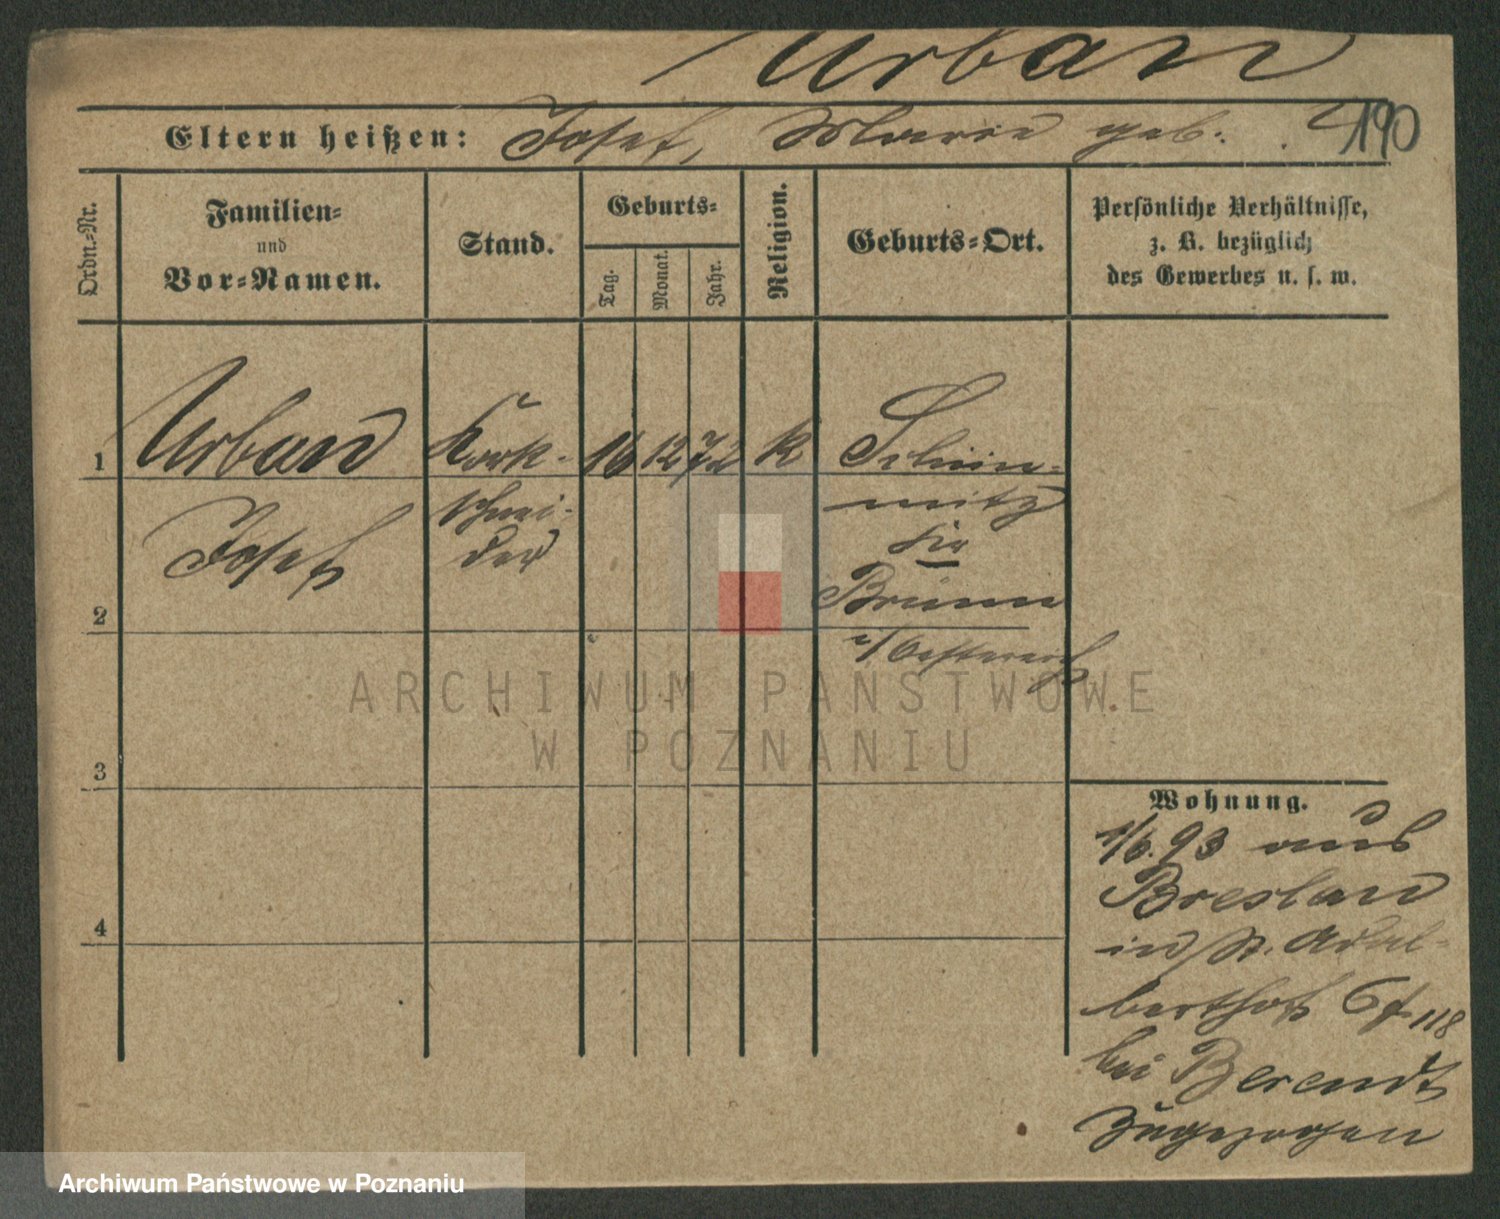 Urban
Eltern heißen: Josef, Marie geb. ?
190
Ordn.-Nr.
Familien-
und
Vor-Namen.
Stand.
Geburts-
Tag.
Monat.
Jahr.
Religion.
Geburts-Ort.
Persönliche Verhältnisse,
z. B. bezüglich
des Gewerbes u. s. w.
1 Urban Kork- 16 12 72 K Schim-
Josef schnei- mitz
der
2 Brünn
i/Oesterreich
ARCHIWUM PAŃSTWOWE
W POZNANIU
3
Wohnung.
1/6. 93 aus
Breslau
in St. Adal-
4
berthof 6 118
bei Berendt
zugezogen
Archiwum Państwowe w Poznaniu